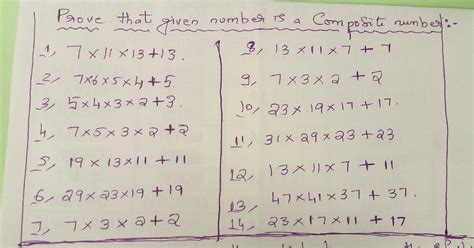 Prove that given number is a Composit number:-
1, 7×11×13+13.
2, 7×6×5×4+5
3, 5×4×3×2+3.
4, 7×5×3×2+2
5, 19×13×11+11
6, 29×23×19+19
7, 7×3×2+2
8, 13×11×7+7
9, 7×3×2+2
10, 23×19×17+17.
11, 31×29×23+23
12, 13×11×7+11
13, 47×41×37+37.
14, 23×17×11+17